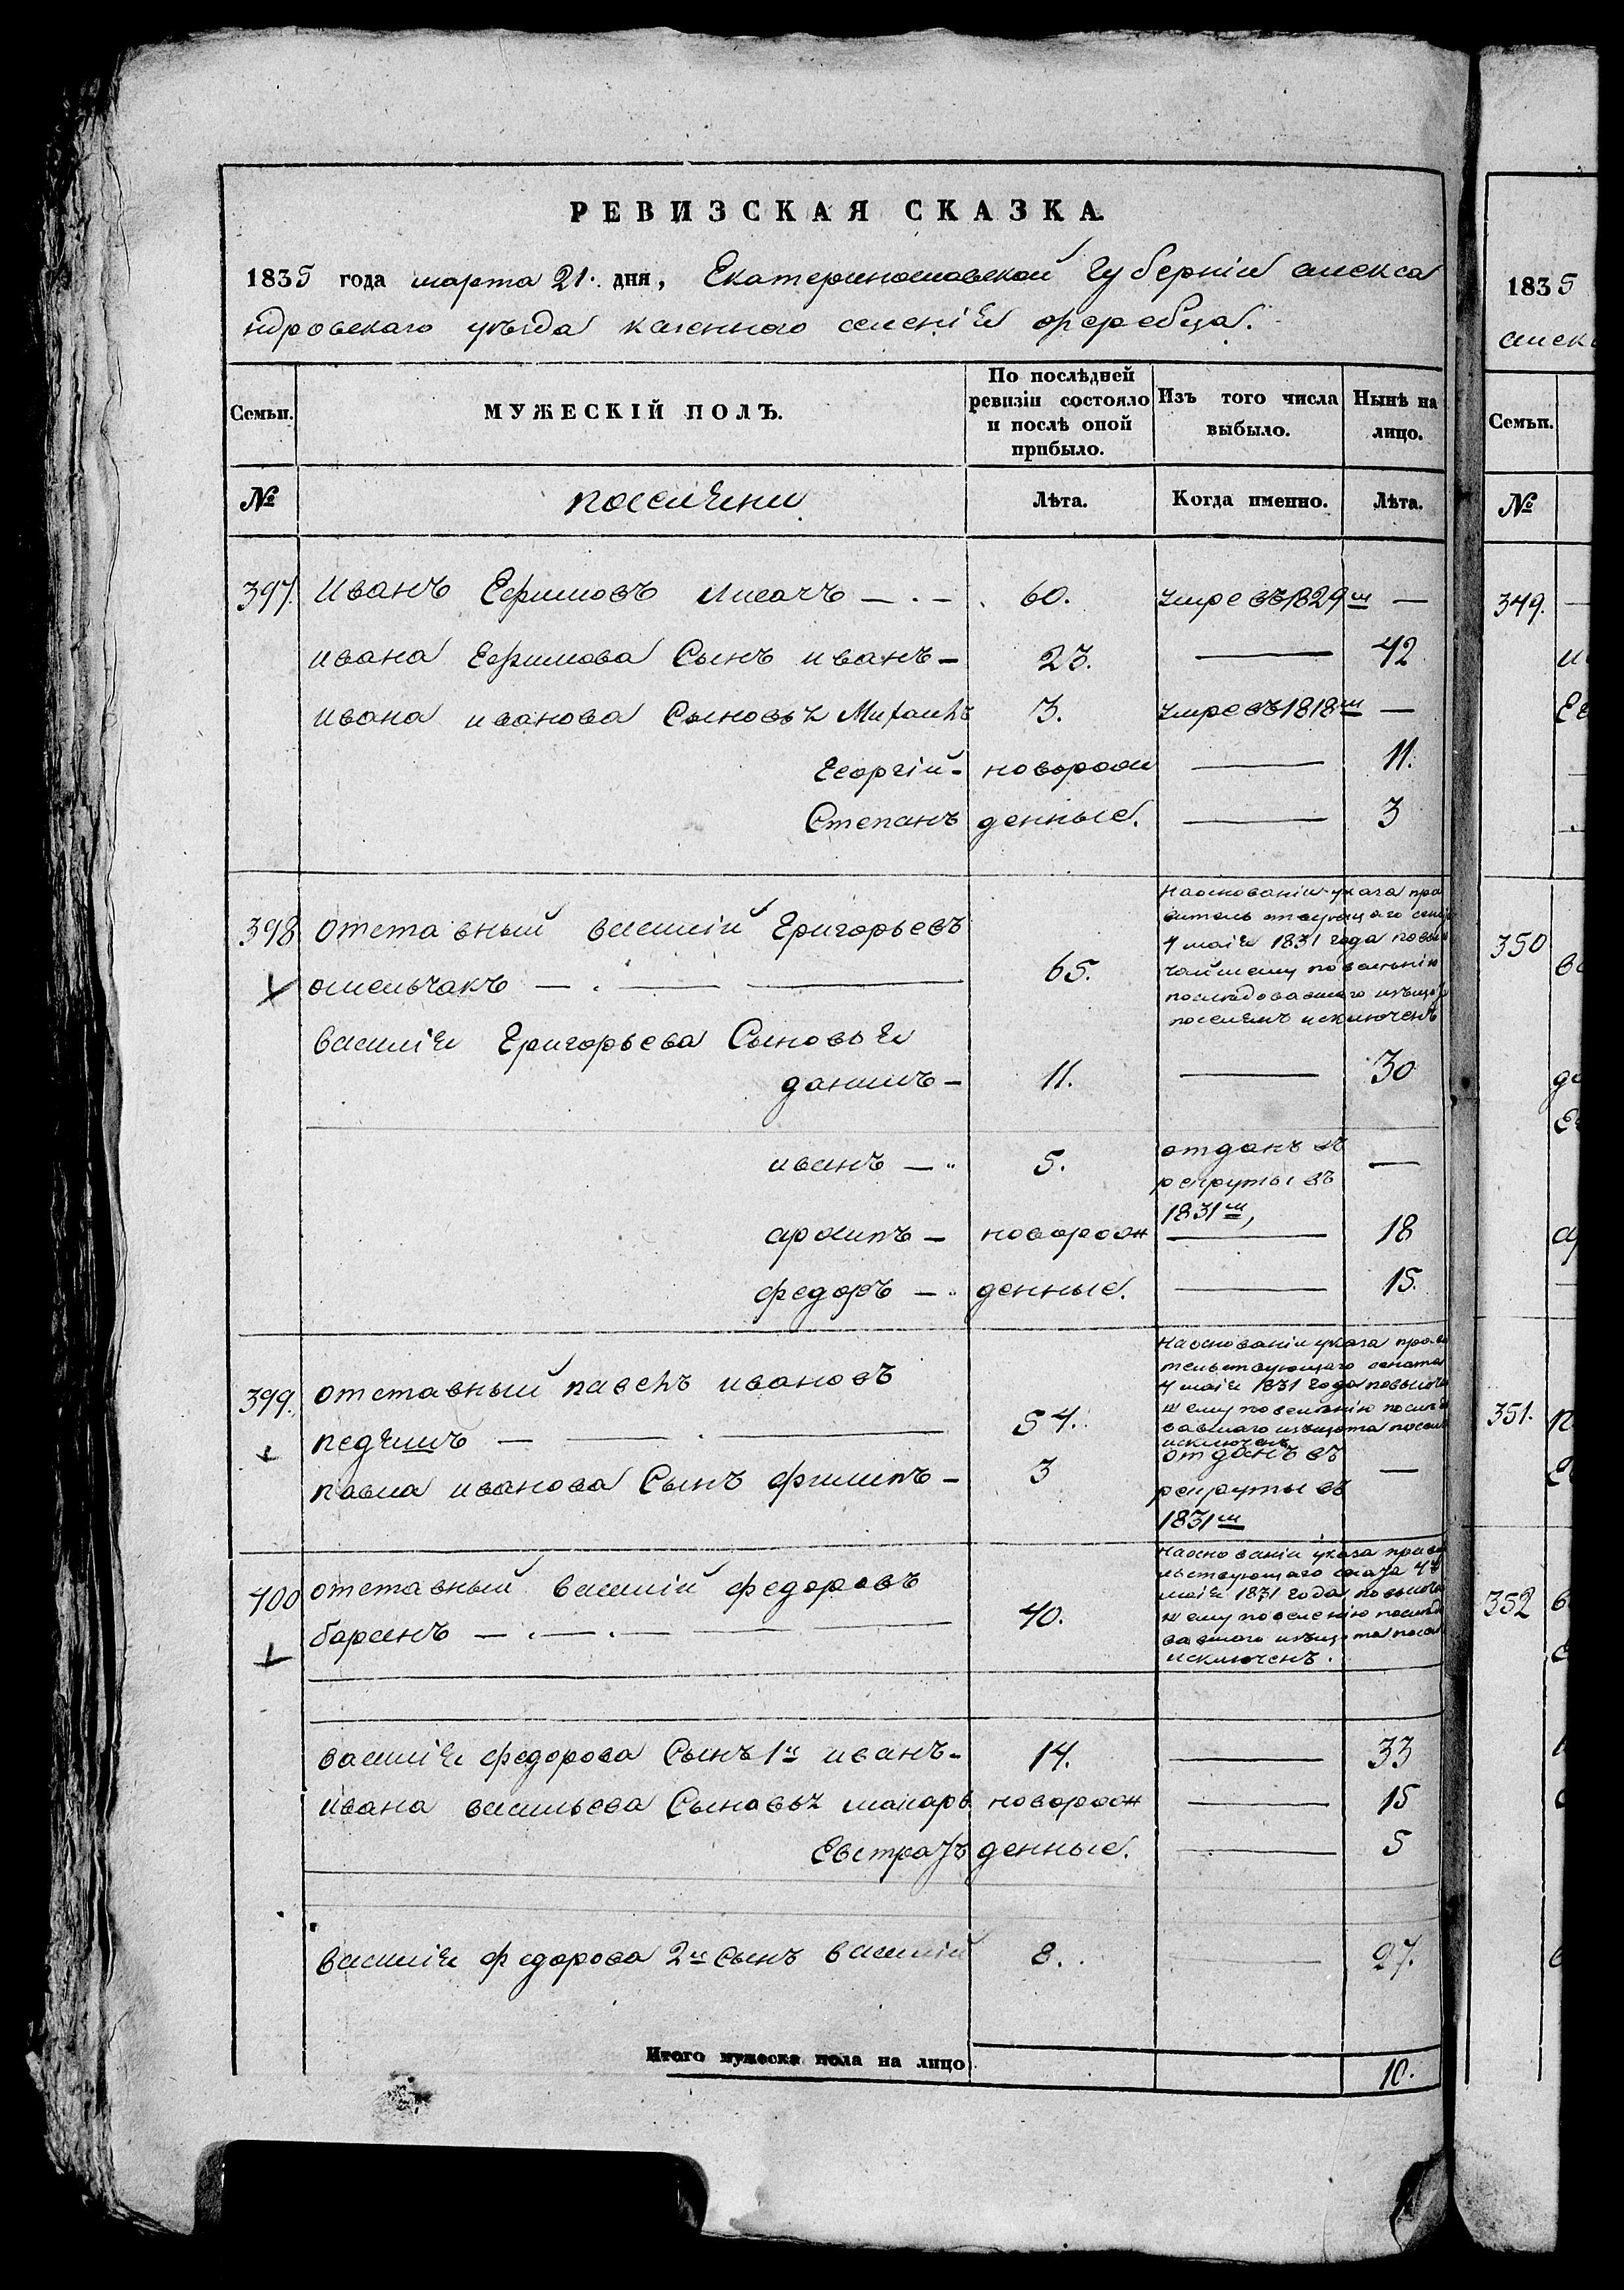 РЕВИЗСКАЯ СКАЗКА.
1835 года марта 21. дня, Екатеринославской Губерніи алекса
ндровскаго уезда казенного селенія орехова.
Семьи.
МУЖЕСКІЙ ПОЛЪ.
По послѣдней
ревизіи состояло
и послѣ оной
прибыло.
Изъ того числа
выбыло.
Нынѣ на
лицо.
№
поселяни
Лѣта.
Когда именно.
Лѣта.
397. Иванъ Ефимовъ Лисачъ — . — 60. умре въ 1829м —
ивана Ефимова Сынъ иванъ — 23. — 42
ивана иванова Сыновья Михаилъ 3. умре въ 1818м —
Георгій — новорож — 11.
Степанъ денные. — 3
398 отставный василій Григорьевъ
омельчакъ — . — — 65.
На основаніи указа пра
вительствующаго сен
4 маія 1831 года повысо
чайшему повеленію
последовавшаго изъ
поселянъ исключенъ
василія Григорьева Сыновья
данилъ — 11. — 30
иванъ — 5. отданъ въ —
рекруты въ
1831м,
архипъ — новорож — 18
федоръ — денные. — 15.
399. отставный павелъ ивановъ
— — . — 54.
На основаніи указа прави
тельствующаго сената
4 маія 1831 года повысочай
шему повеленію последо
вавшаго
исключенъ
павла иванова Сынъ филипъ — 3 отданъ въ —
рекруты въ
1831м
400 отставный василій федоровъ
— . — . — — — 40.
На основаніи указа прави
льствующаго сената 4го
маія 1831 года повысочай
шему повеленію последо
вавшаго
исключенъ.
василія федорова Сынъ 1й иванъ — 14. — 33
ивана васильева Сыновья макаръ новорож — 15
Евстрат денные. — 5
василія федорова 2й Сынъ василій 8. — 27.
Итого мужеска пола на лицо 10.
1835
алек
Семьи.
№
349.
350
351.
352